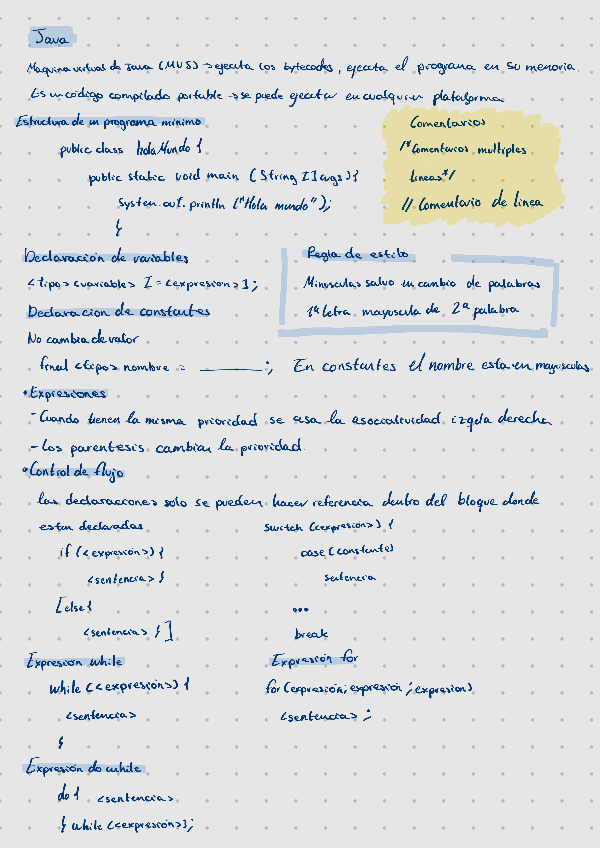 Java
Maquina virtual de Java (MVJ) → ejecuta los bytecodes, ejecuta el programa en su memoria.
Es un código compilado portable → se puede ejecutar en cualquier plataforma
Estructura de un programa minimo
public class holaMundo {
public static void main (String [] args) {
System.out.println ("Hola mundo");
}
Comentarios
/* Comentarios multiples
lineas */
// Comentario de linea
Declaracion de variables
<tipo> <variable> [ = <expresion> ];
Declaracion de constantes
No cambia de valor
final <tipo> nombre = ______;
En constantes el nombre esta en mayusculas
Regla de estilo
Minusculas salvo en cambio de palabras
1ª letra mayuscula de 2ª palabra
• Expresiones
- Cuando tienen la misma prioridad se usa la asociatividad izqda derecha
- Los parentesis cambian la prioridad.
• Control de flujo
las declaraciones solo se pueden hacer referencia dentro del bloque donde
estan declaradas
if (<expresión>) {
<sentencia> }
[else {
<sentencia> } ]
switch (<expresion>) {
case (constante)
sentencia
...
break
Expresion while
while (<expresión>) {
<sentencia>
}
Expresión for
for (expresion; expresión; expresion)
<sentencia> ;
Expresión do while
do { <sentencia>
} while (<expresión>);